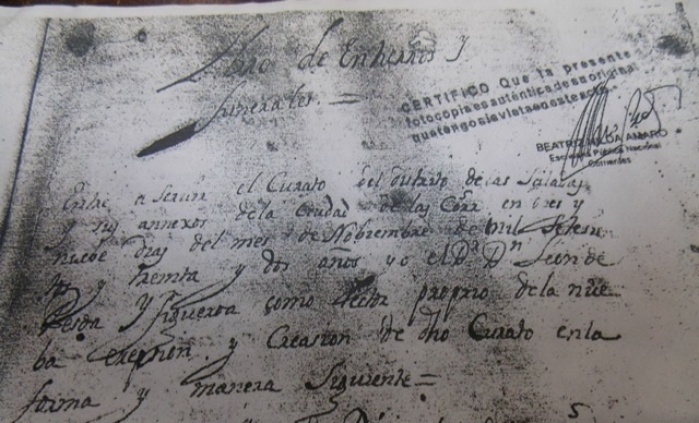 Libro de Entierros y
funerales. =
CERTIFICO Que la presente
fotocopia es auténtica de su original
que tengo a la vista en este acto.
BEATRIZ HILDA AMARO
Escribana Pública Nacional
Corrientes
Entre a servir el Curato del distrito de las Saladas
y sus annexos de la Ciudad de las Corr.
nuebe Dias del mes de Nobiembre de mil setesien
tos y treinta y dos años yo el Dr. Dn.
y figueroa como Rector proprio de la nue
ba ereccion y Creasion de dho Curato en la
forma y manera siguiente =